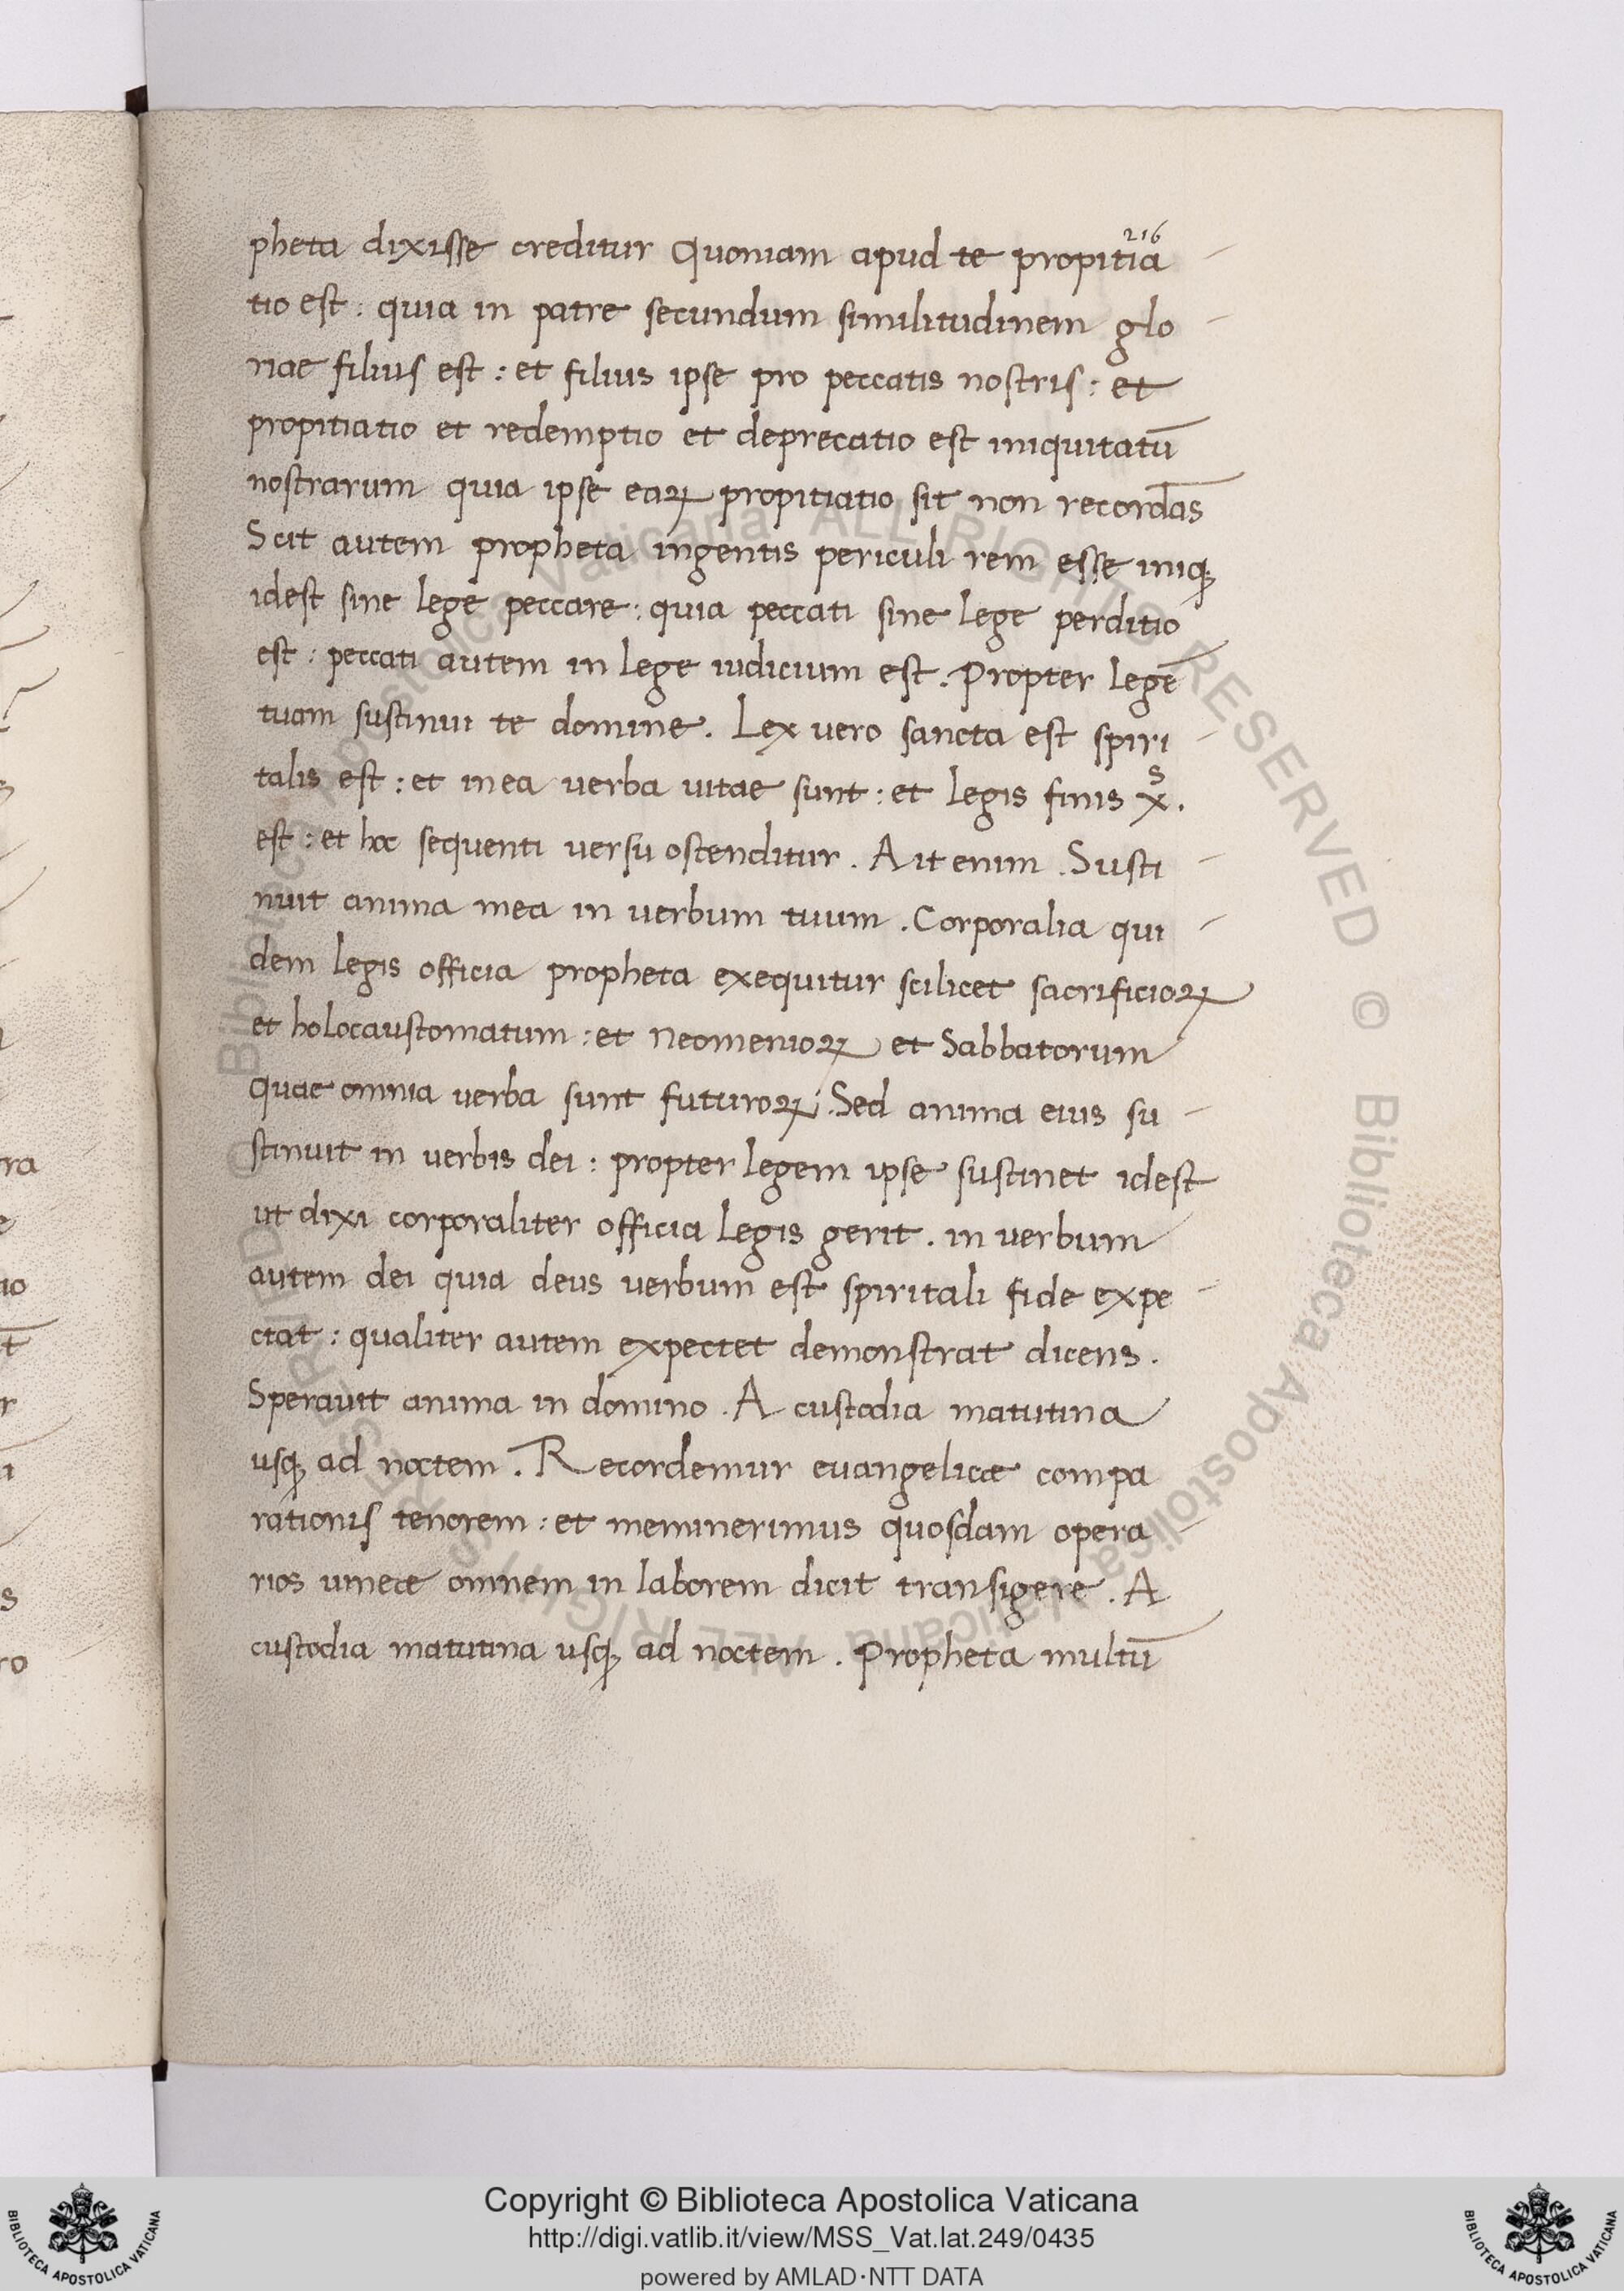 216
pheta dixisse creditur Quoniam apud te propitia
tio est : quia in patre secundum similitudinem glo
riae filius est : et filius ipse pro peccatis nostris : et
propitiatio et redemptio et deprecatio est iniquitatū
nostrarum quia ipse eaꝝ propitiatio sit non recordās
Scit autem propheta ingentis periculi rem esse iniqꝫ
idest sine lege peccare : quia peccati sine lege perditio
est : peccati autem in lege iudicium est. Propter legē
tuam sustinui te domine. Lex vero sancta est spiri
talis est : et mea verba vitae sunt : et legis finis xˢ.
est : et hoc sequenti versu ostenditur. Ait enim. Susti
nuit anima mea in verbum tuum. Corporalia qui
dem legis officia propheta exequitur scilicet sacrificioꝝ
et holocaustomatum : et Neomenioꝝ et Sabbatorum
quae omnia verba sunt futuroꝝ. Sed anima eius su
stinuit in verbis dei : propter legem ipse sustinet idest
ut dixi corporaliter officia legis gerit. in verbum
autem dei quia deus verbum est spiritali fide expe
ctat : qualiter autem expectet demonstrat dicens.
Speravit anima in domino. A custodia matutina
usqꝫ ad noctem. Recordemur evangelicae compa
rationis tenorem : et meminerimus quosdam opera
rios omnem in laborem dicit transigere. A
custodia matutina usqꝫ ad noctem. Propheta multū
© Biblioteca Apostolica Vaticana ALL RIGHTS RESERVED © Biblioteca Apostolica Vaticana ALL RIGHTS RESERVED
ra
io
ro
Copyright © Biblioteca Apostolica Vaticana
http://digi.vatlib.it/view/MSS_Vat.lat.249/0435
powered by AMLAD·NTT DATA
BIBLIOTECA APOSTOLICA VATICANA
BIBLIOTECA APOSTOLICA VATICANA